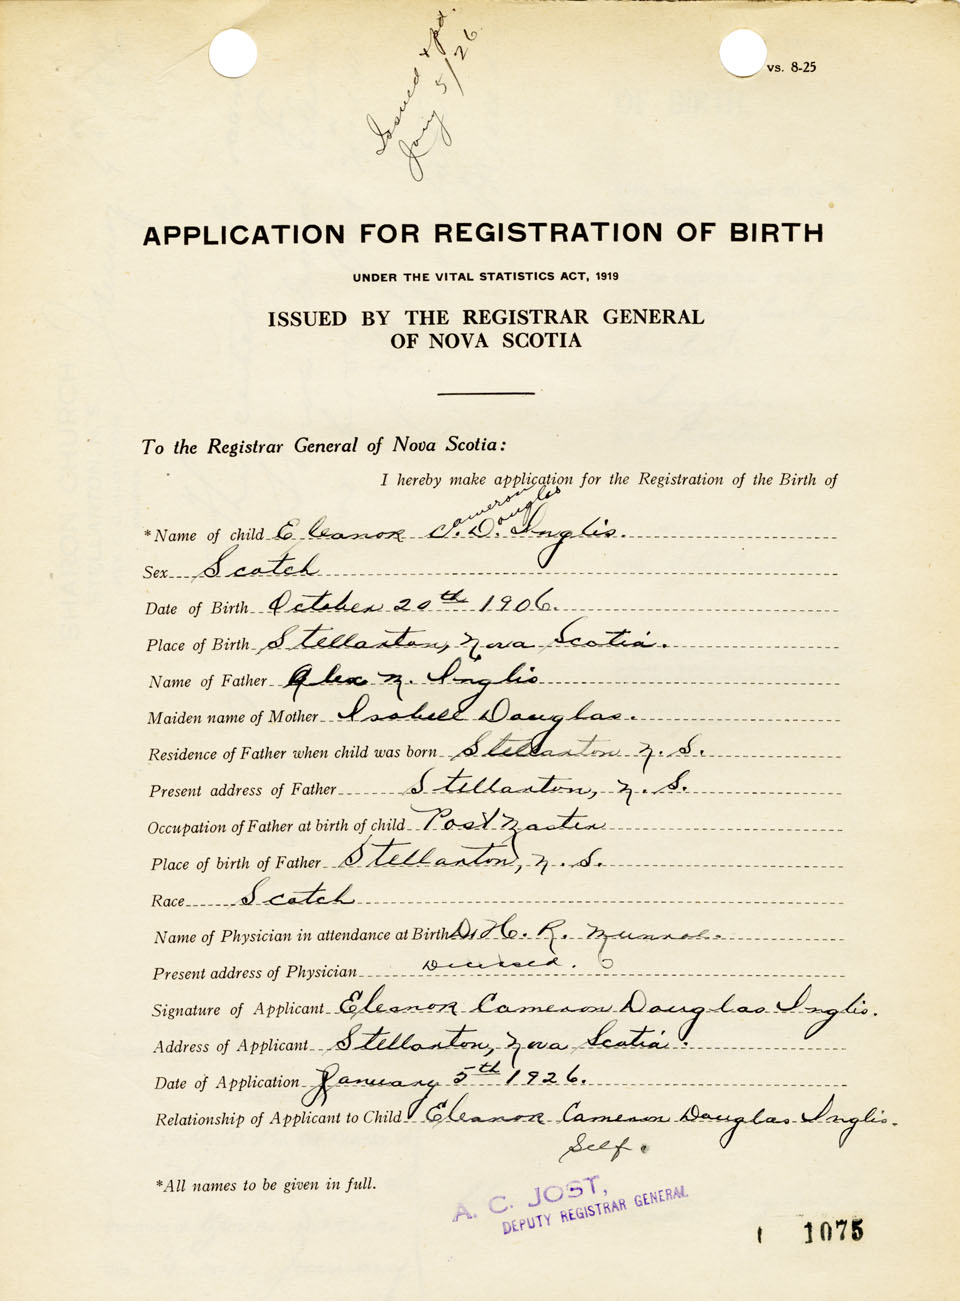 Issued & pd.
Jany 5/26
vs. 8-25
APPLICATION FOR REGISTRATION OF BIRTH
UNDER THE VITAL STATISTICS ACT, 1919
ISSUED BY THE REGISTRAR GENERAL
OF NOVA SCOTIA
To the Registrar General of Nova Scotia:
I hereby make application for the Registration of the Birth of
ameron ouglas
*Name of child Eleanor C. D. Inglis.
Sex Scotch
Date of Birth October 20th 1906.
Place of Birth Stellarton, Nova Scotia.
Name of Father Alex N. Inglis
Maiden name of Mother Isabell Douglas.
Residence of Father when child was born Stellarton N. S.
Present address of Father Stellarton, N. S.
Occupation of Father at birth of child Post Master
Place of birth of Father Stellarton, N. S.
Race Scotch
Name of Physician in attendance at Birth Dr H. R. Munroe.
Present address of Physician
Signature of Applicant Eleanor Cameron Douglas Inglis.
Address of Applicant Stellarton, Nova Scotia.
Date of Application January 5th 1926.
Relationship of Applicant to Child Eleanor Cameron Douglas Inglis.
Self.
*All names to be given in full.
A. C. JOST,
DEPUTY REGISTRAR GENERAL
1075